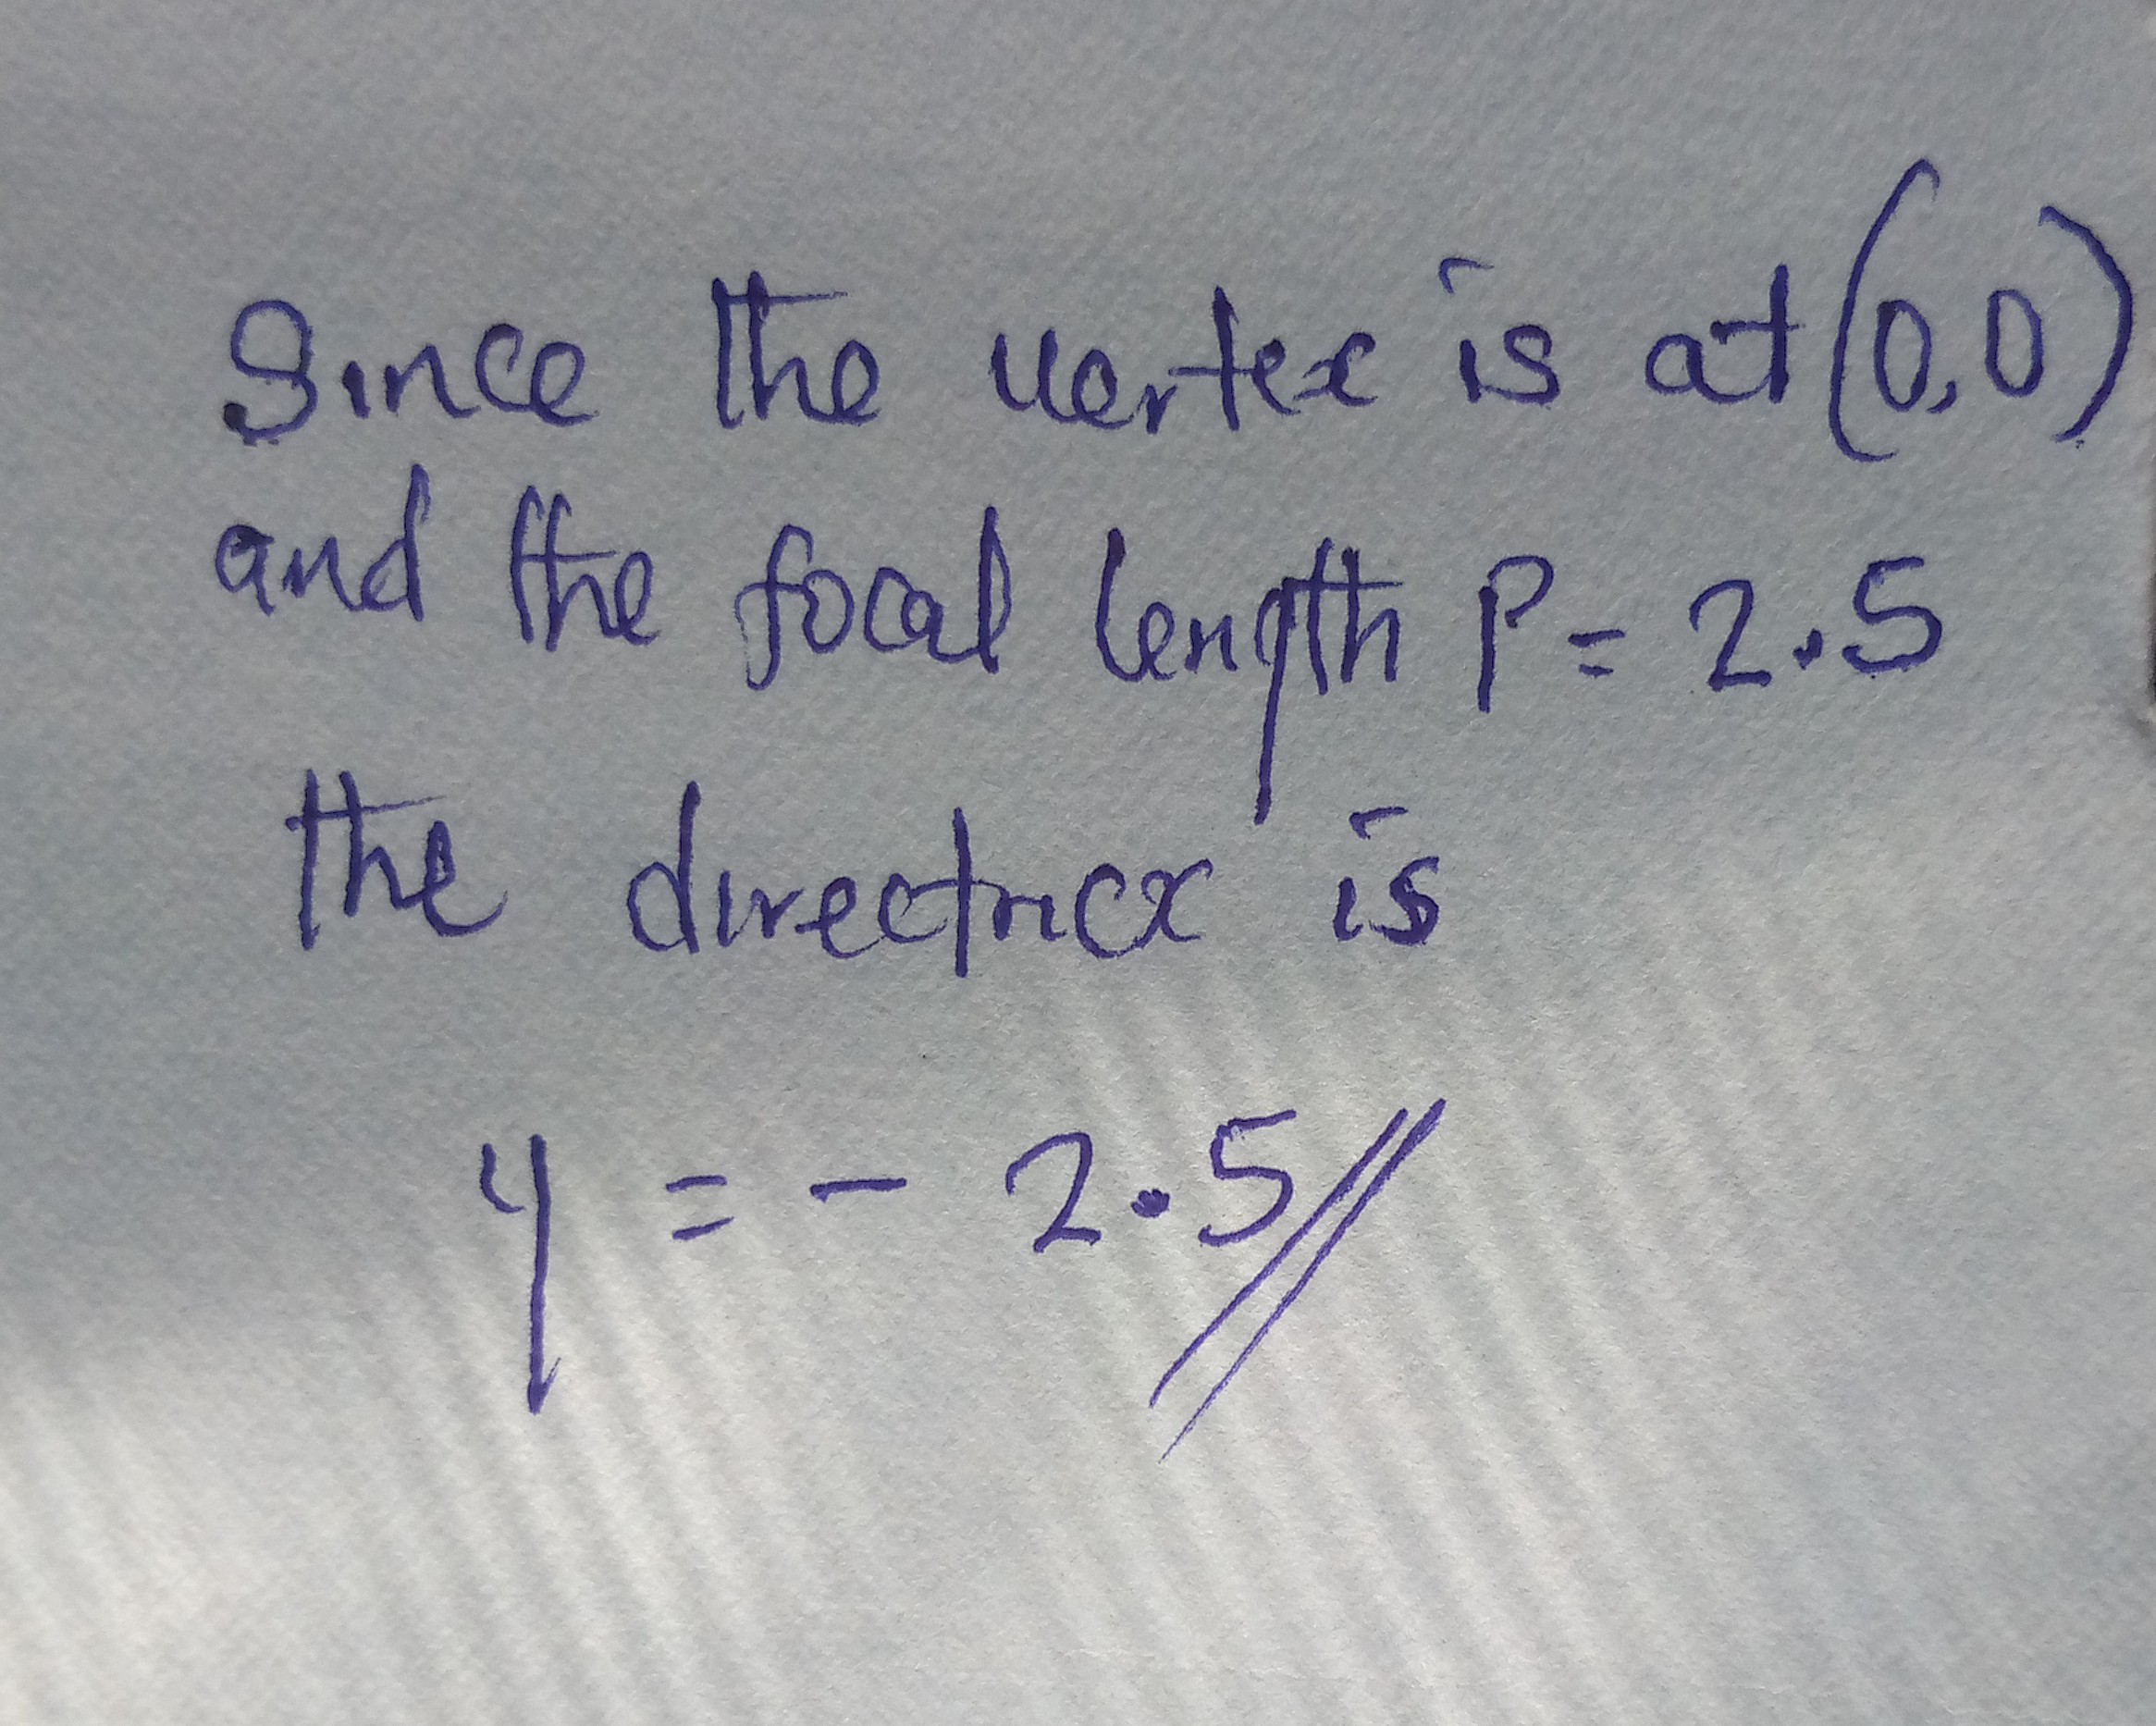 Since the vertex is at (0,0)
and the focal length P = 2.5
the directricx is
y = - 2.5//